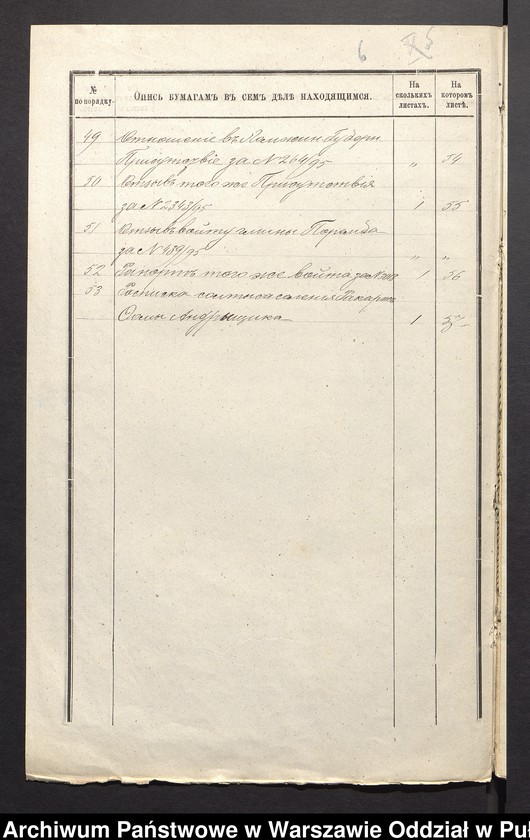 6 5
№ по порядку.
Опись бумагамъ въ семъ дѣлѣ находящимся.
На сколькихъ листахъ.
На которомъ листѣ.
49 Отношеніе въ Губерн
Присутствіе за № 264/95 „ 54
50 Отзывъ того же Присутствія
за № 2343/95 1 55
51 Отзывъ войту гмины Поремба
за № 439/95 „ „
52 Рапортъ того же войта за № 1 56
53 Росписка селенія
1
Archiwum Państwowe w Warszawie Oddział w Pu